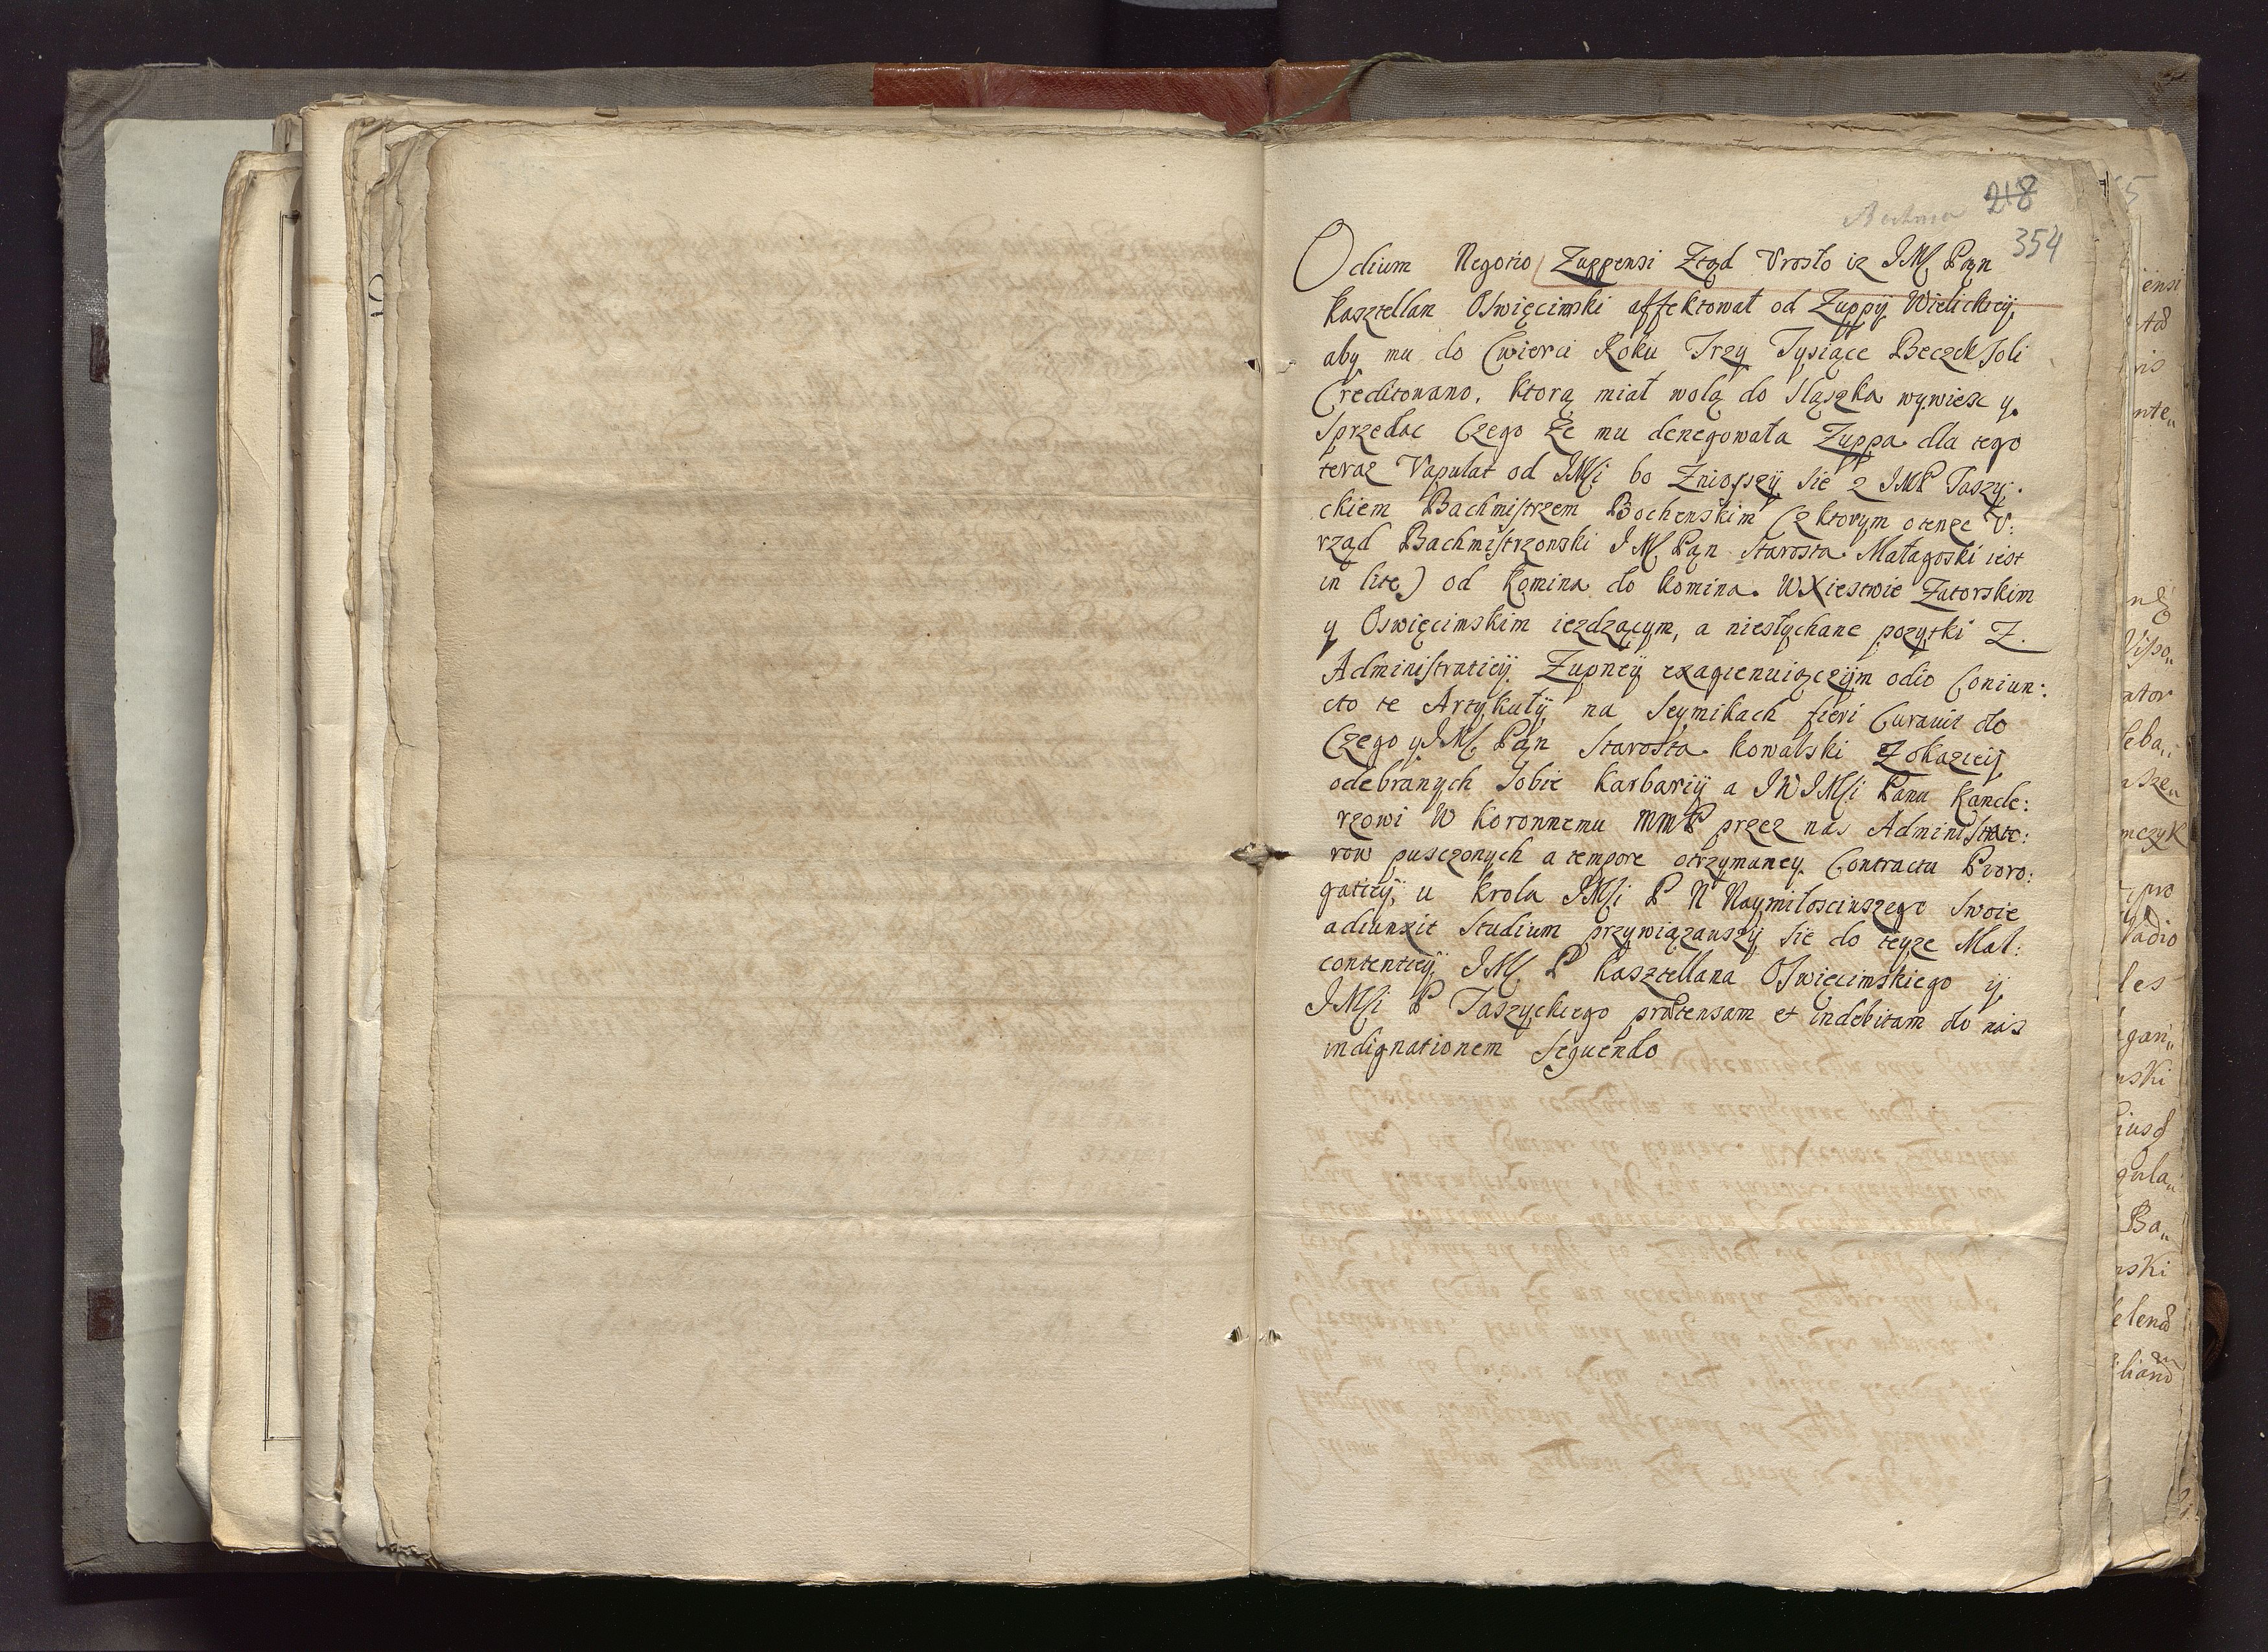 218
354
Odium Negotio Zuppensi Ztąd Vrosło iz JM Pąn
Kasztellan Oswięcimski affektował od Zuppÿ Wielickieÿ
aby mu do Cwierci Roku Trzy Tysiące Beczek Soli
Creditowano, ktorą miał wolą do Sląszka wywiesc y
Sprzedac Czego Ze mu denegowała Zuppa dla tego
teraz Vapulat od JMsi bo Zniosszÿ sie z JMP Taszy:
ckiem Bachmistrzem Bochenskim (z ktorym otenze V:
rząd Bachmistrzonski JM Pąn Starosta Małagoski iest
in lite) od komina do komina. WXiestwie Zatorskim
y Oswięcimskim iezdzącym, a niesłychane pozytki Z.
Administratieÿ Zupneÿ exagienuiączÿm odio Coniun:
cto te Artykułÿ na Seymikach fieri Curauit do
Czego y JM Pąn Starosta kowalski Z okazieÿ
odebranych Sobie Karbariÿ a JWJMsi Panu Kancle:
rzowi W Koronnemu MMP przez nas Administrato:
row pusczonych a tempore otrzymaney Contractu Proro:
gatieÿ, u Krola JMsi P N Naymiłosciwszego Swoie
adiunxit Studium przywiązauszÿ Sie do teyze Mal:
contentieÿ JM P Kasztellana Oswięcimskiego ÿ
JMsi P Taszyckiego prætensam et indebitam do nas
indignationem Sequendo